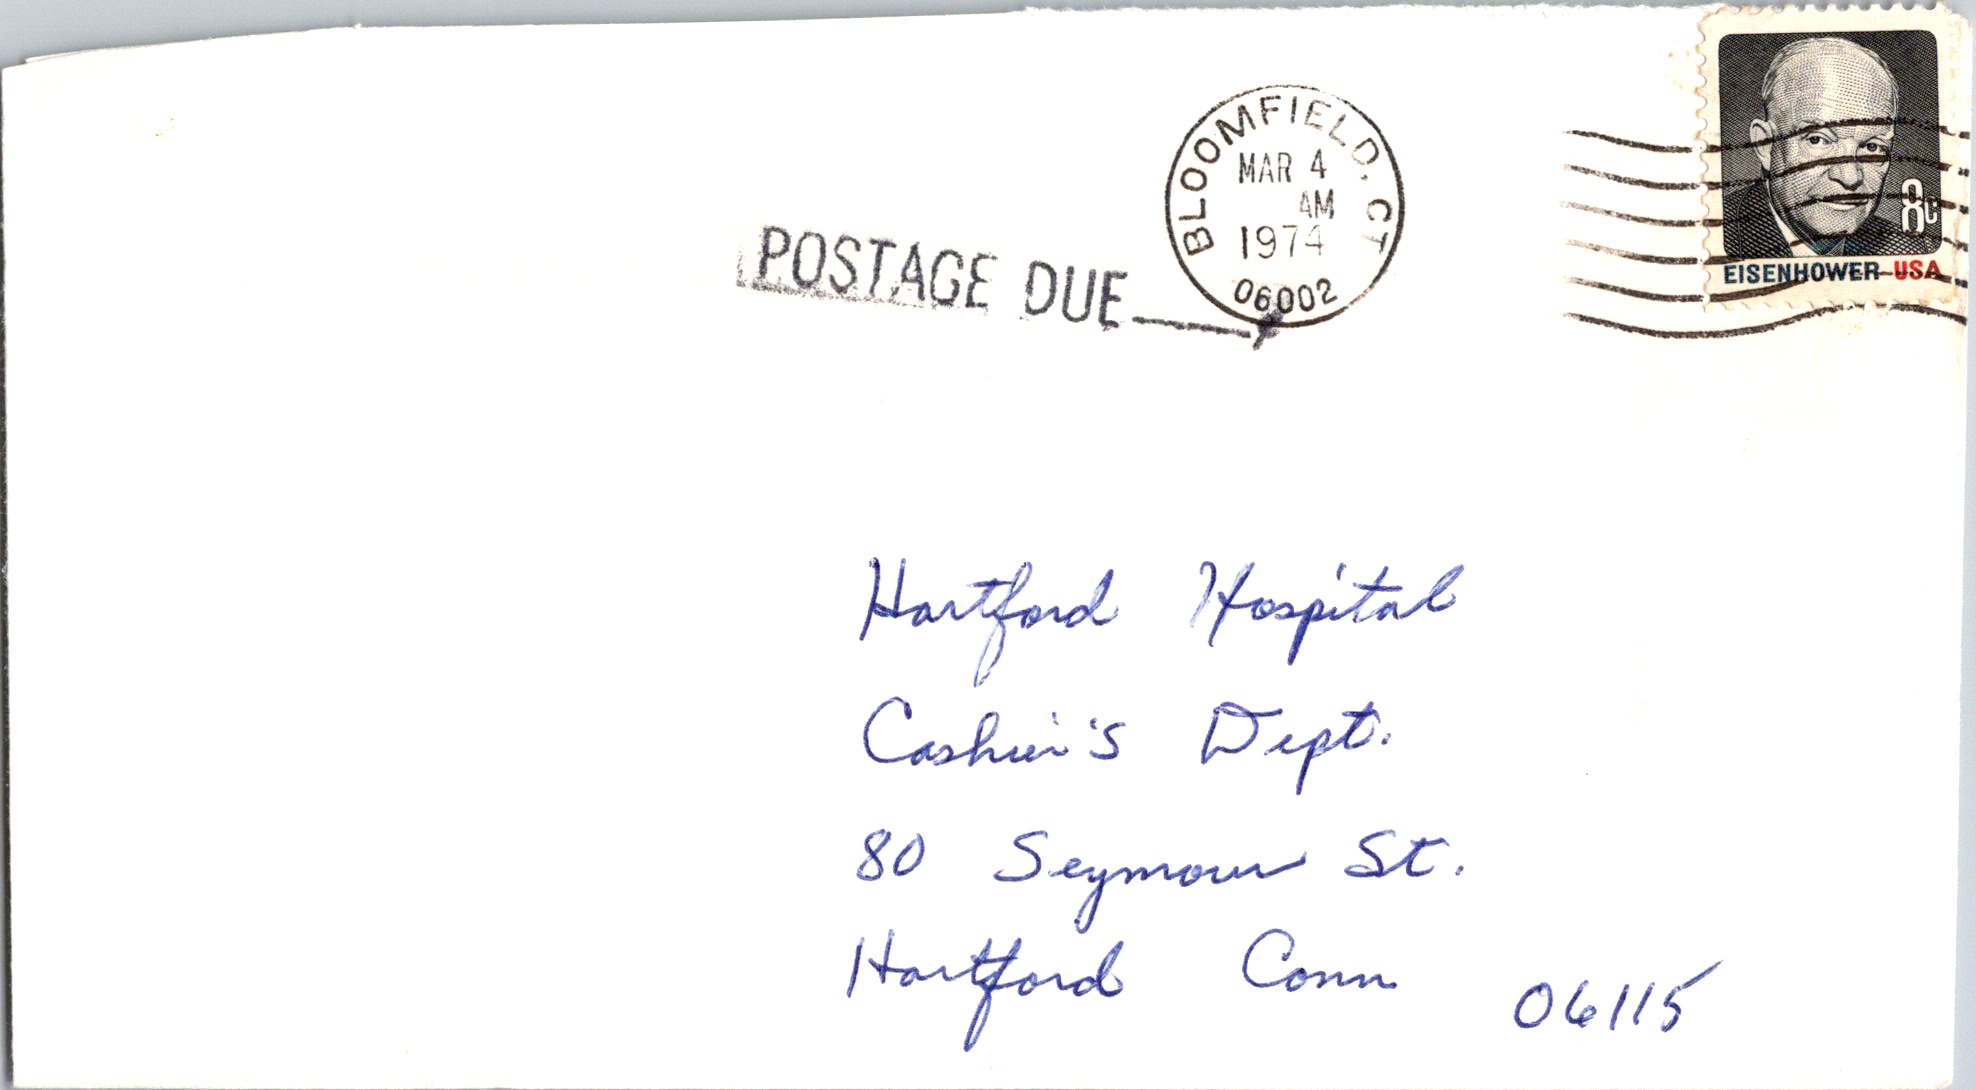 BLOOMFIELD, CT
MAR 4
AM
1974
06002
8c
EISENHOWER USA
POSTAGE DUE
Hartford Hospital
Cashier's Dept.
80 Seymour St.
Hartford Conn
06115